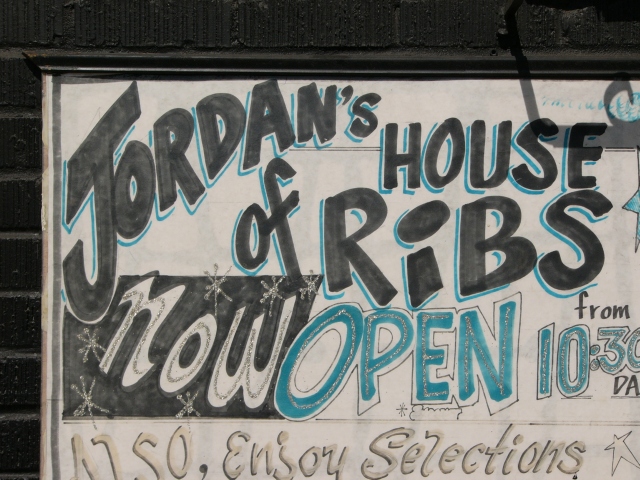 JORDAN'S HOUSE
of RiBS
NOW OPEN from
10:30
DA
ALSO, Enjoy Selections